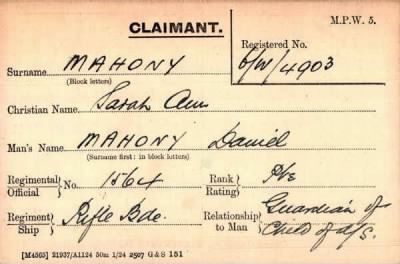 CLAIMANT.
M.P.W. 5.
Registered No.
6/W/4903
Surname MAHONY
(Block letters)
Christian Name Sarah Ann
Man's Name MAHONY Daniel
(Surname first: in block letters)
Regimental Official No. 1564 Rank Rating Pte
Regiment Ship Rifle Bde. Relationship to Man Guardian of Child of d/S.
[M4565] 21937/A1124 50m 1/24 2507 G & S 151